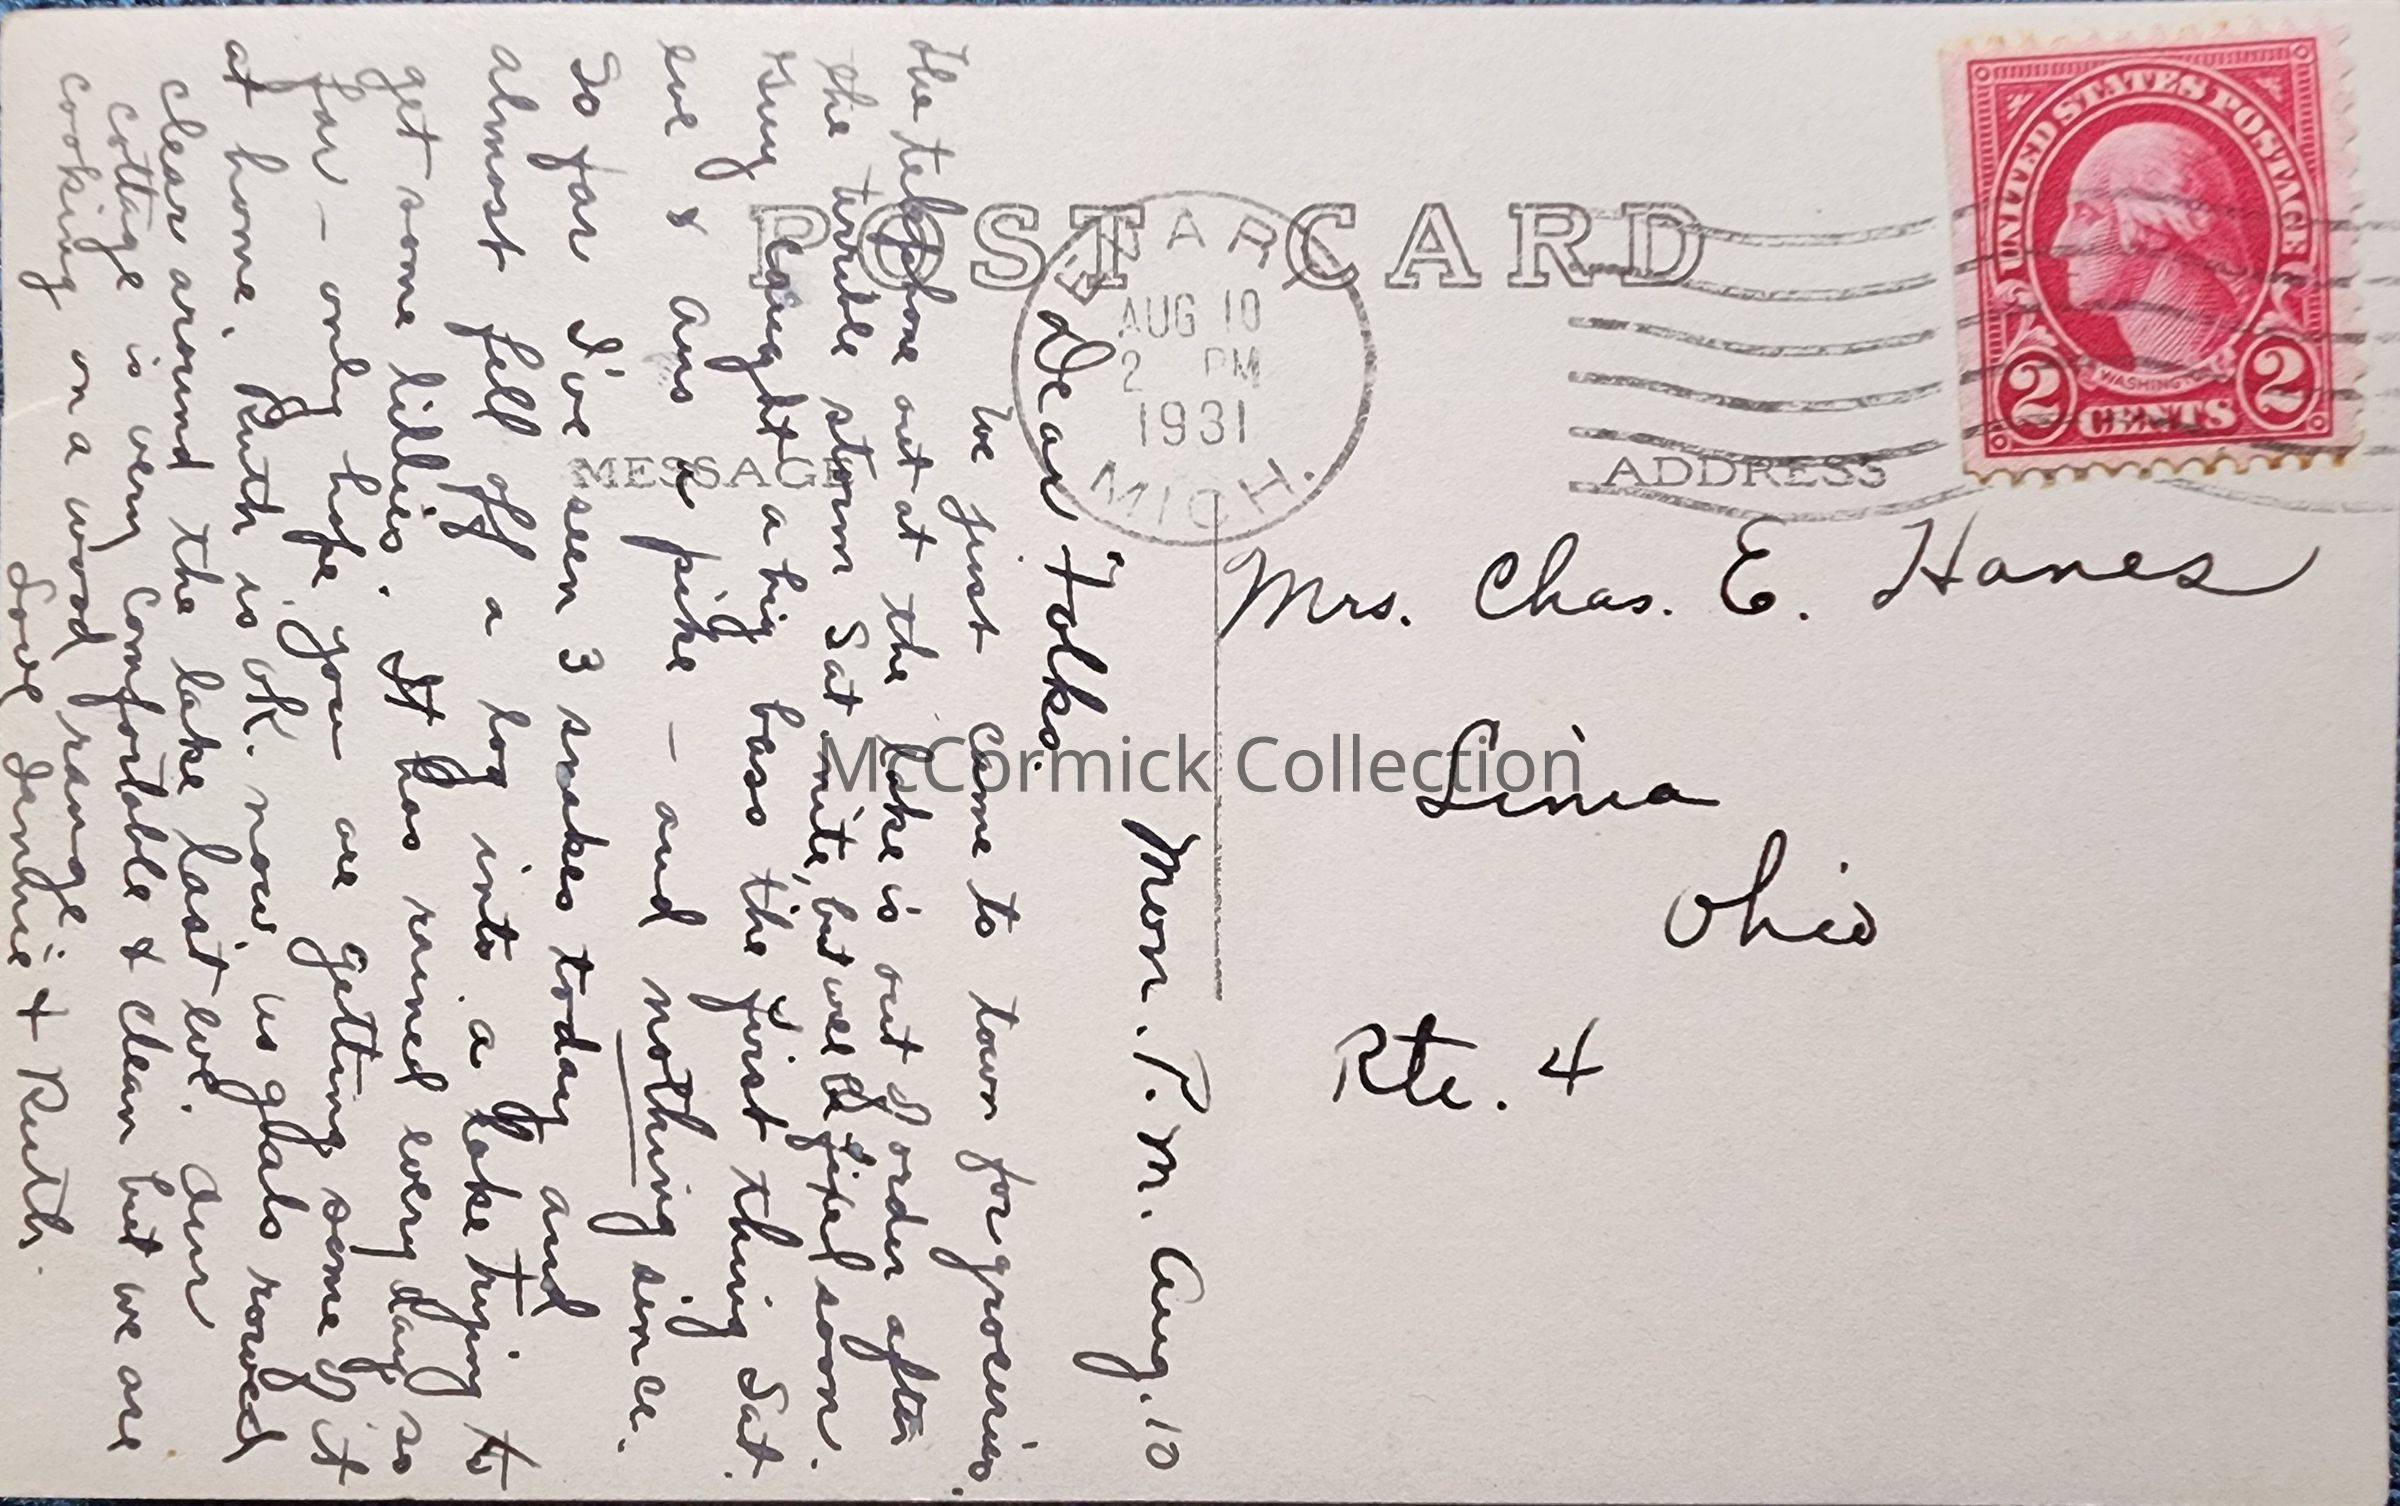 POST CARD
MESSAGE
ADDRESS
AUG 10
2 PM
1931
MICH.
UNITED STATES POSTAGE
WASHINGTON
2 CENTS 2
Mrs. Chas. E. Hanes
Lima
Ohio
Rte. 4
Mon. P. M. Aug. 10
Dear Folks.
We just came to town for groceries.
The telephone out at the lake is out of order after
the terrible storm Sat. nite, but will be fixed soon.
Guy caught a big bass the first thing Sat.
eve & Ans a pike – and nothing since.
So far I've seen 3 snakes today and
almost fell off a log into a lake trying to
get some lillies. It has rained every day so
far – only hope you are getting some of it
at home. Ruth is OK. now, us gals rowed
clear around the lake last eve. Our
cottage is very comfortable & clean but we are
cooking on a wood range.
Love & Ruth.
McCormick Collection